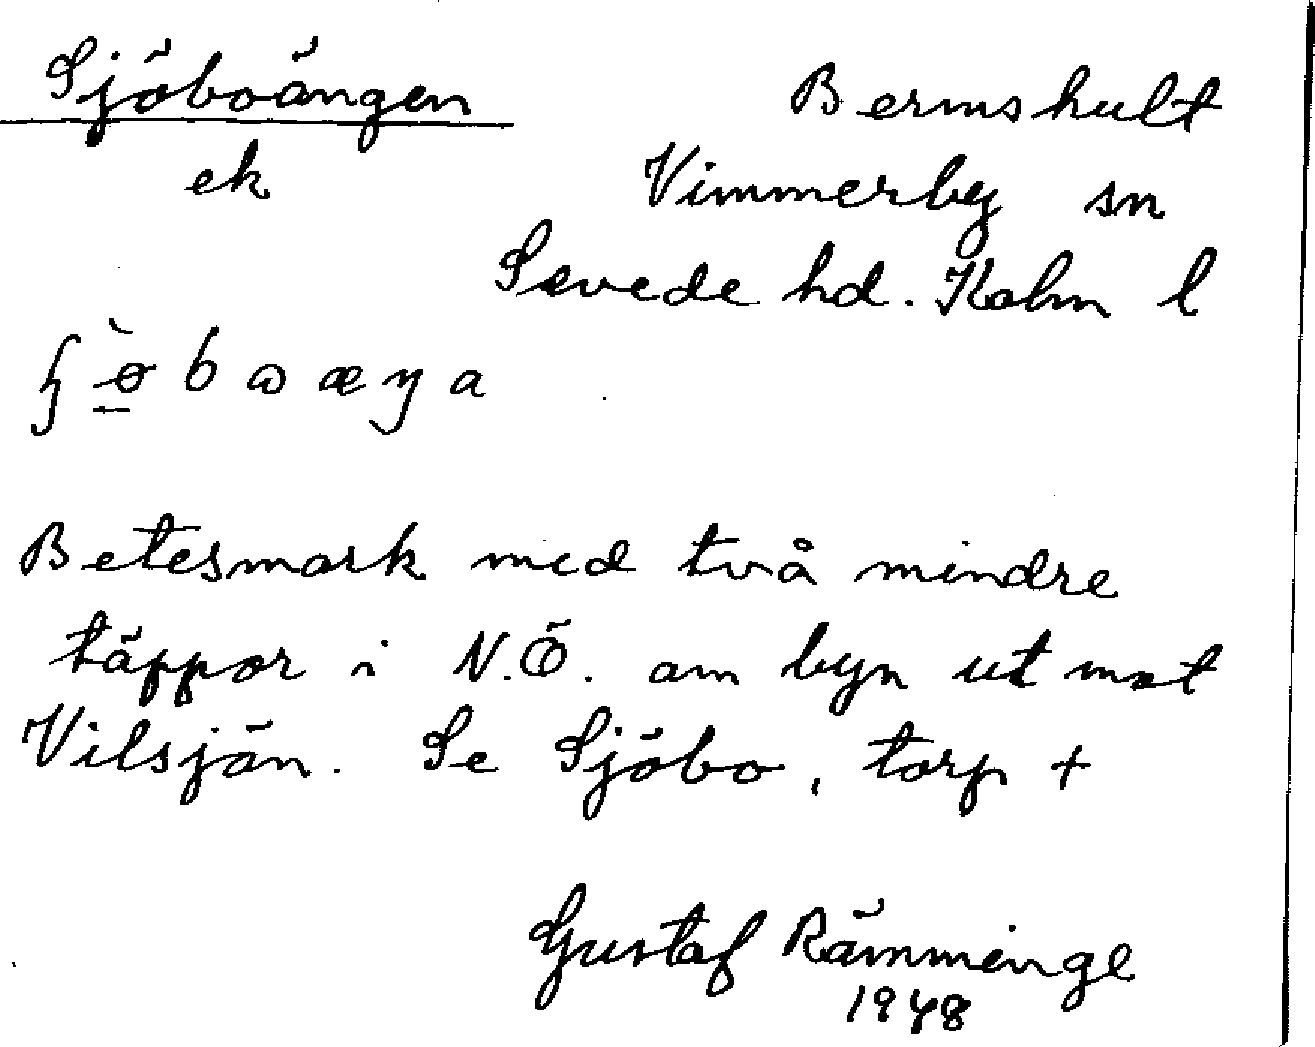 Sjöboängen
Bermshult
ek
Vimmerby sn
Sevede hd. Kalm l
Betesmark med två mindre
täppor i N.Ö. om byn ut mot
Vilsjön. Se Sjöbo, torp +
Gustaf Rämminge
1948